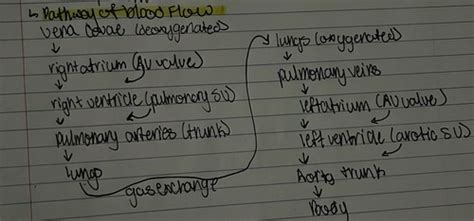 ↳ Pathway of blood Flow
vena cavae (deoxygenated)
↓
right atrium (AV valve)
↓
right ventricle (pulmonary SV)
↓
pulmonary arteries (trunk)
↓
lungs
gas exchange
lungs (oxygenated)
↓
pulmonary veins
↓
left atrium (AV valve)
↓
left ventricle (aortic SV)
↓
Aorta trunk
↓
Body